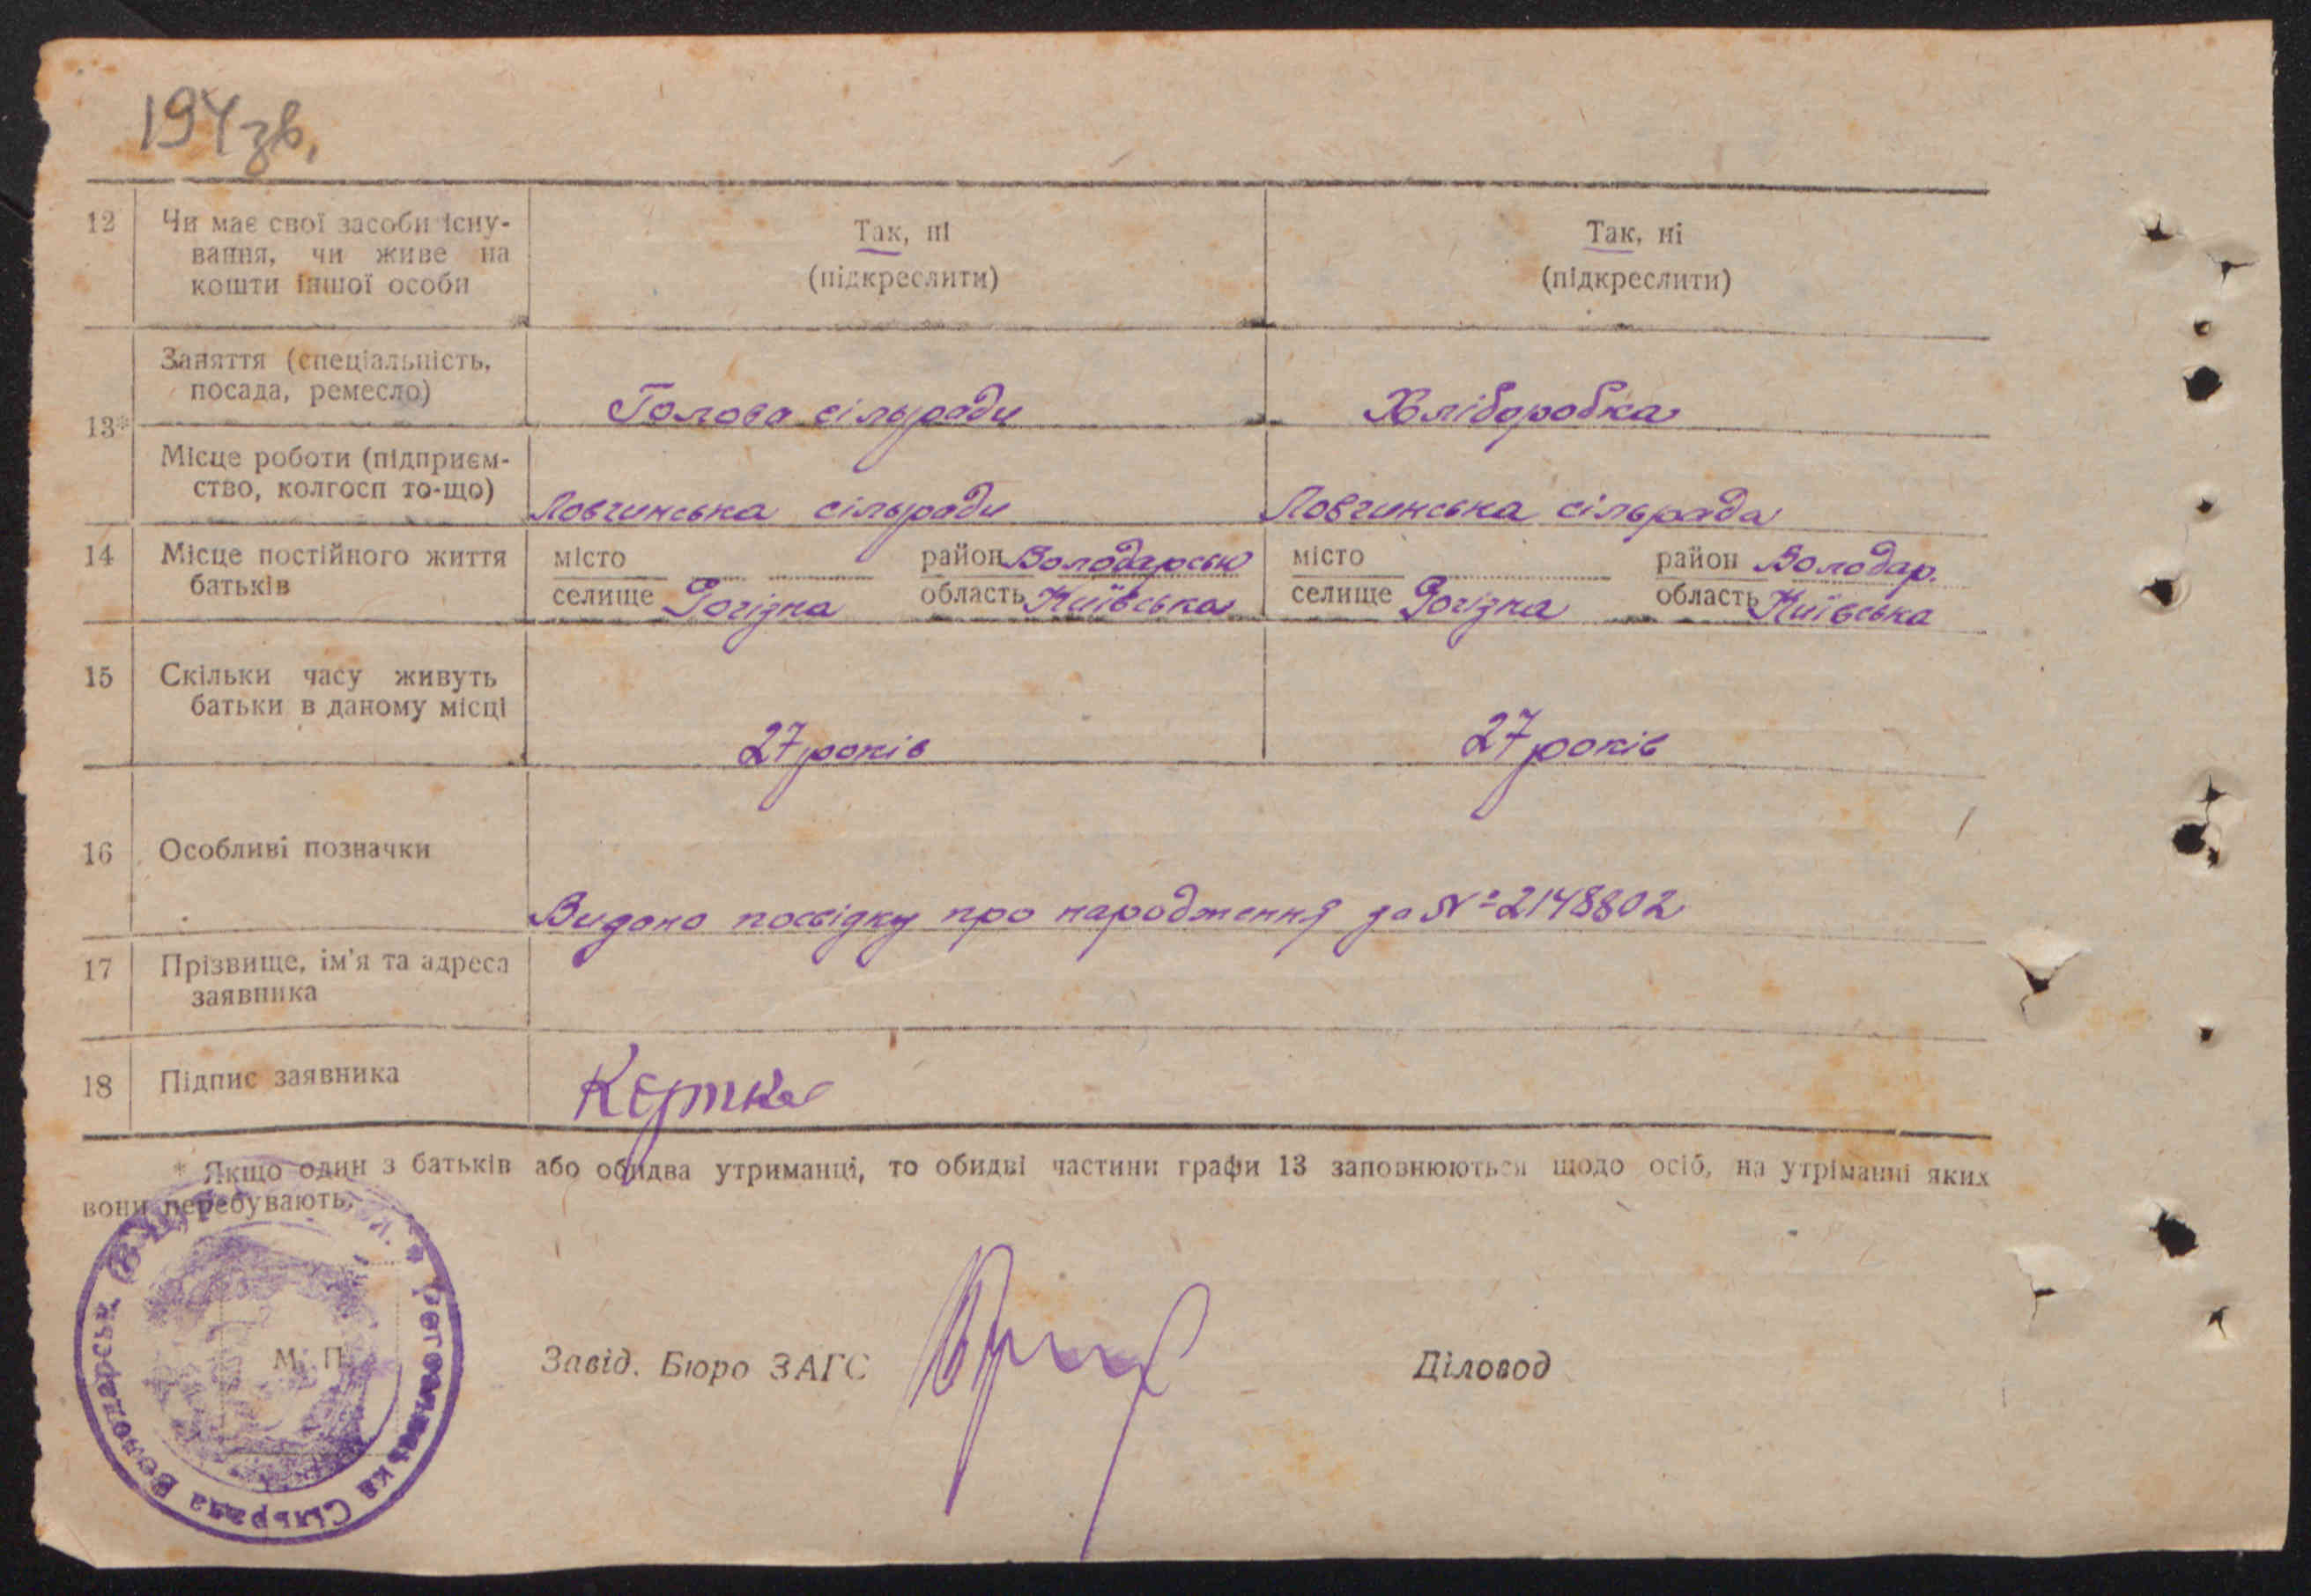 194 зв.
12 Чи має свої засоби існу-
вання, чи живе на
кошти іншої особи
Так, ні
(підкреслити)
Так, ні
(підкреслити)
13*
Заняття (спеціальність,
посада, ремесло)
Голова сільради
Хліборобка
Місце роботи (підприєм-
ство, колгосп то-що)
Ловчинська сільради
Ловчинська сільрада
14 Місце постійного життя
батьків
місто район Володарськ
селище Рогізна область Київська
місто район Володар.
селище Рогізна область Київська
15 Скільки часу живуть
батьки в даному місці
27 років
27 років
16 Особливі позначки
Видано посвідку про народження за № 2148802
17 Прізвище, ім'я та адреса
заявника
18 Підпис заявника
* Якщо один з батьків або обидва утриманці, то обидві частини графи 13 заповнюються щодо осіб, на утріманні яких
вони перебувають.
Сільрада Володарськ
М. П.
Завід. Бюро ЗАГС
Діловод